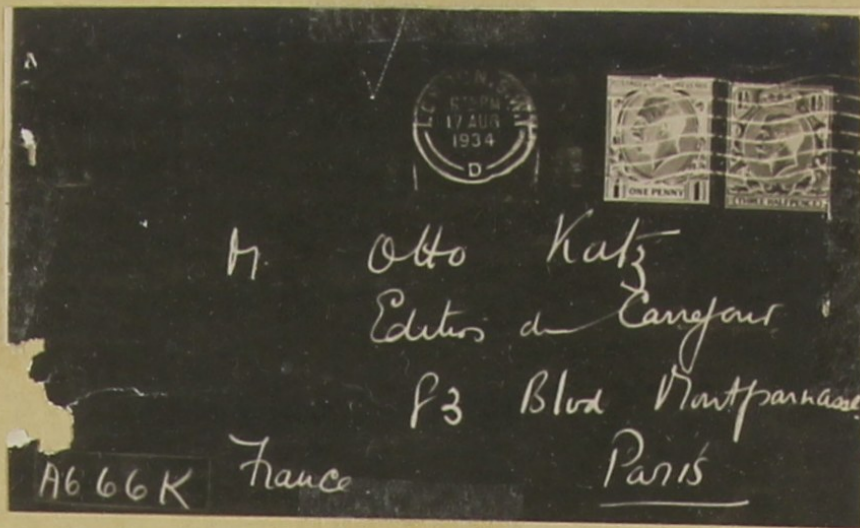 LONDON. S.W.1
6 15 PM
17 AUG
1934
D
ONE PENNY
THREE HALFPENCE
M. Otto Katz
Editions du Carrefour
83 Blvd Montparnasse
Paris
France
A6 66K